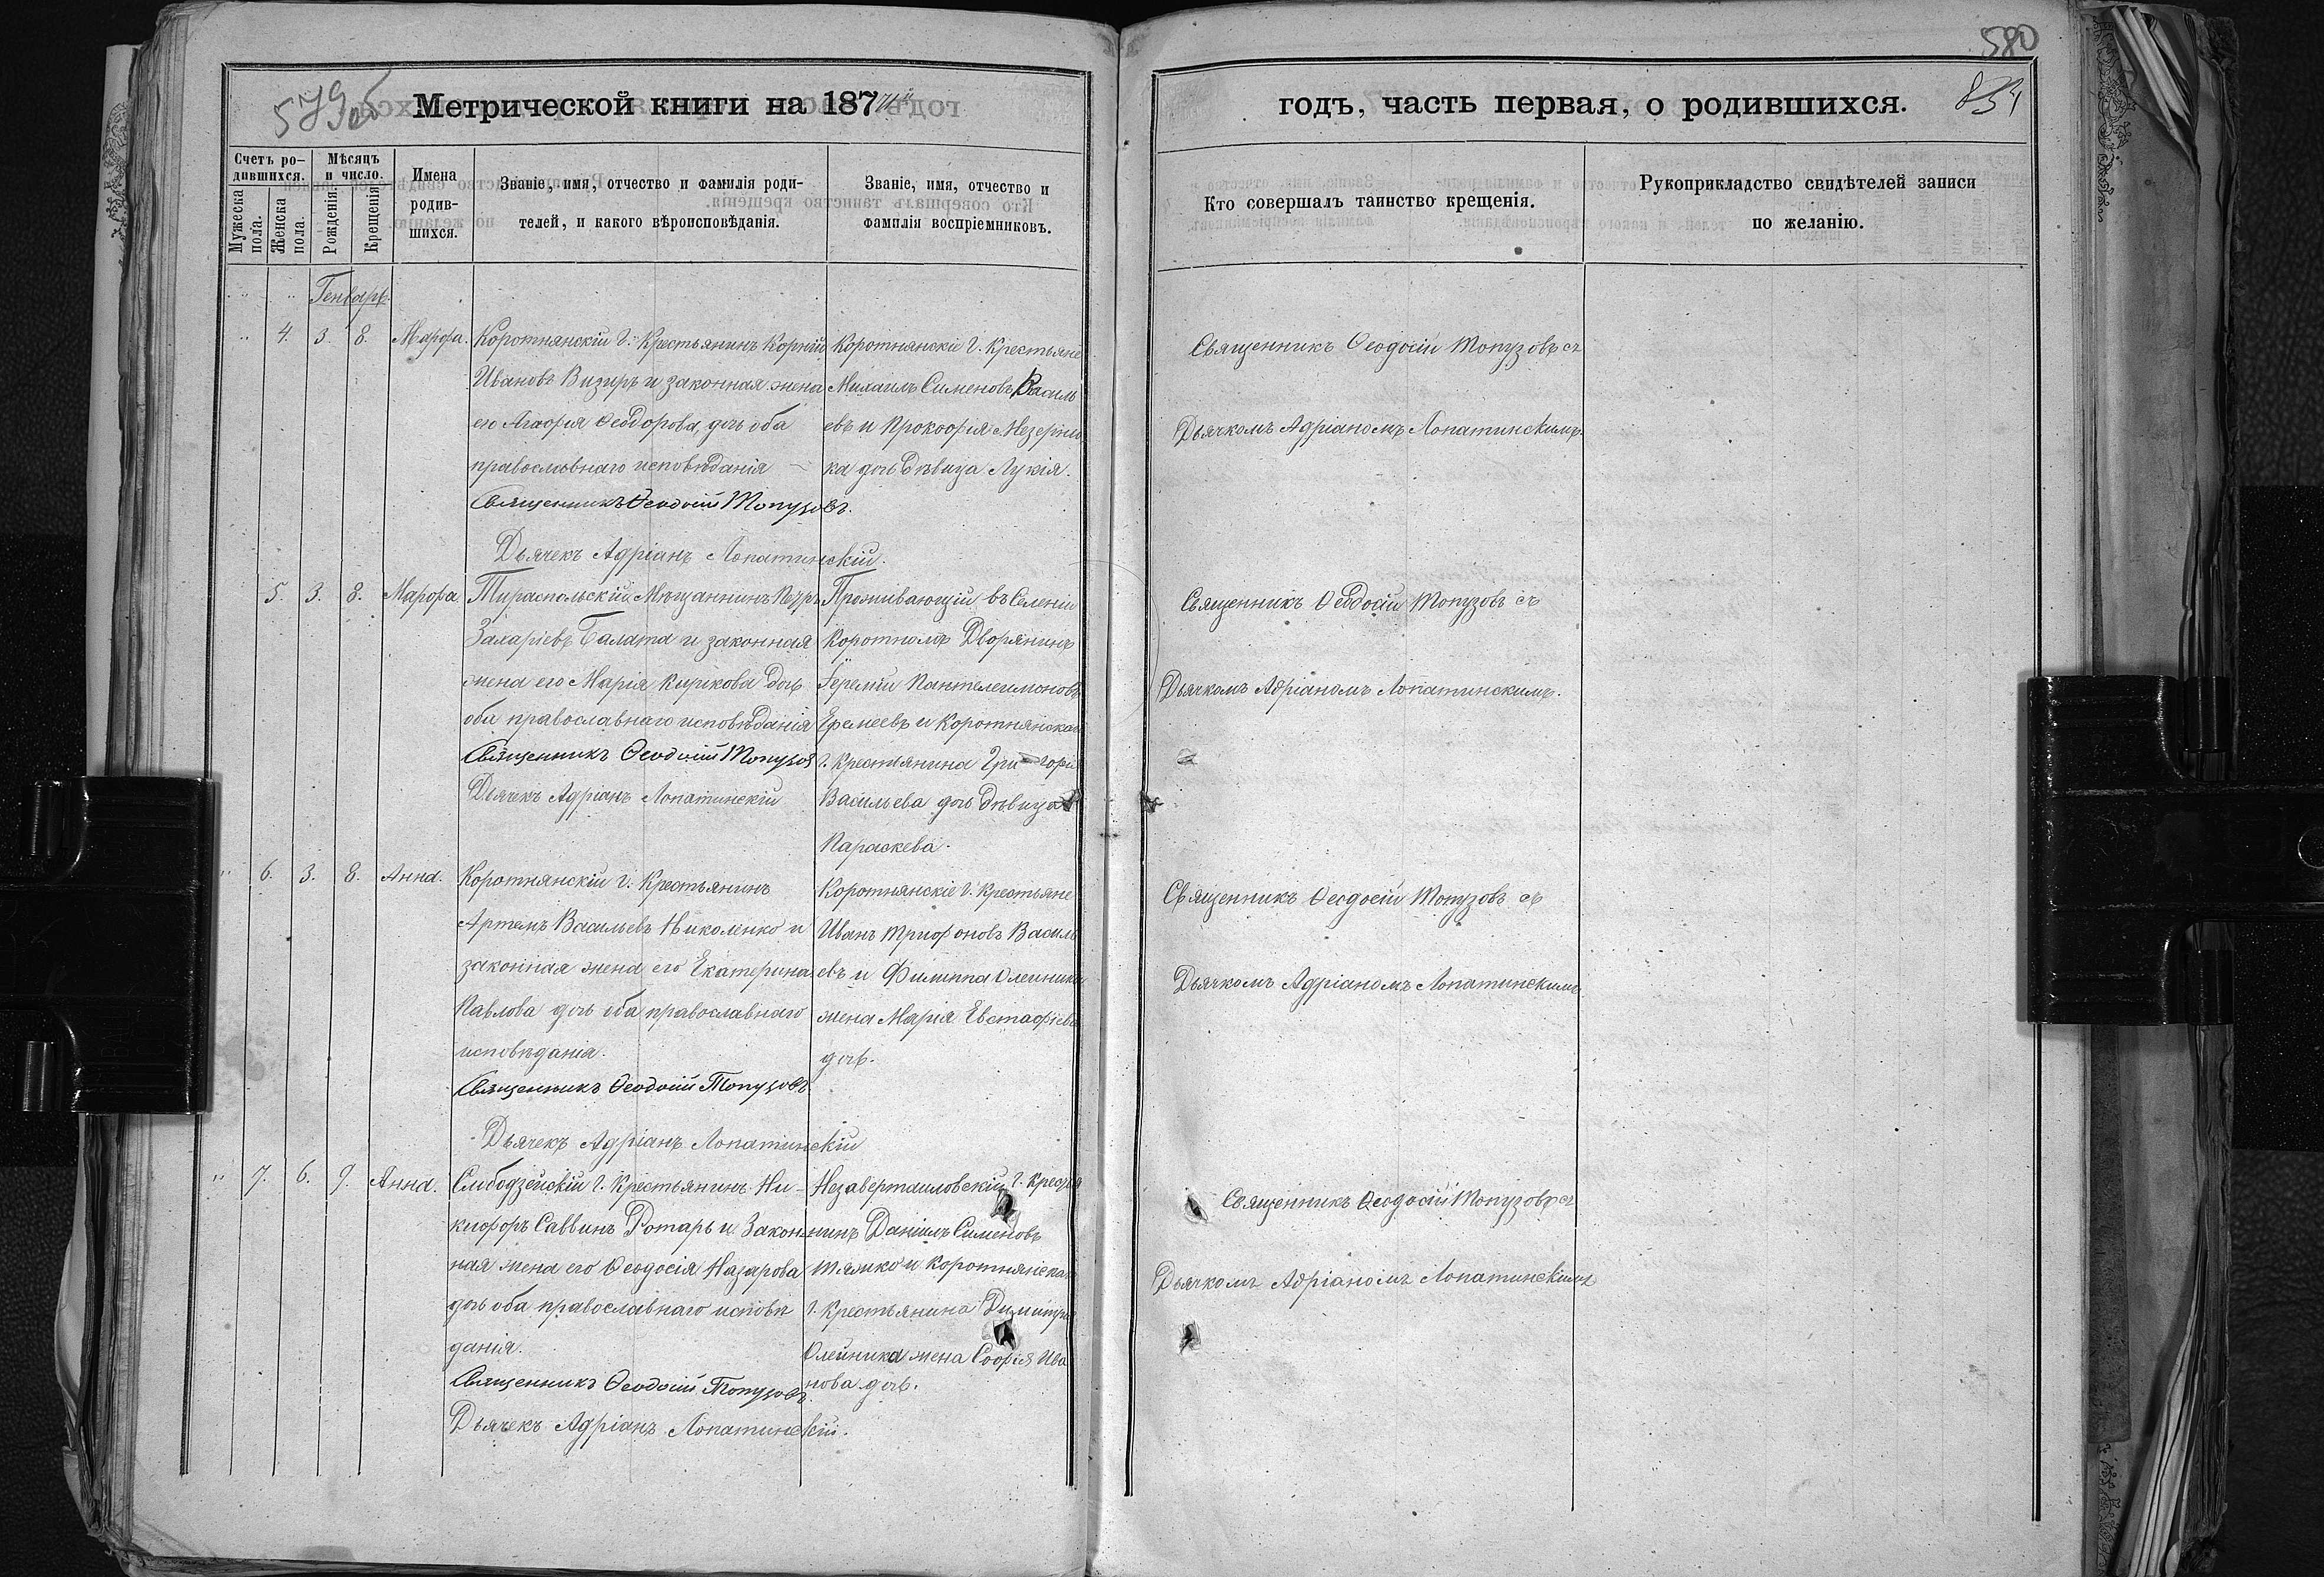 579об
Метрической книги на 187
Счетъ ро-
дившихся.
Мѣсяцъ
и число.
Мужеска
пола.
Женска
пола
Рожденія.
Крещенія.
Имена
родив-
шихся.
Званіе, имя, отчество и фамилія роди-
телей, и какого вѣроисповѣданія.
Званіе, имя, отчество и
фамилія воспріемниковъ.
Генварь.
4. 3. 8. Марфа.
Коротнянскій г. Крестьянинъ Корній
Ивановъ Визиръ и законная жена
его Агафія Ѳеодорова дочь оба
православнаго исповѣданія
Священникъ Ѳеодосій Топузовъ.
Дьячекъ Адріанъ Лопатинскій.
Коротнянскіе г. Крестьяне
Михаилъ Сименовъ Василь
евъ и Прокофія
ка дочь дѣвица Лукія.
5. 3. 8. Марфа.
Тираспольскій Мѣщанинъ Петръ
Захаріевъ Балата и законная
жена его Марія Кирікова дочь
оба православнаго исповѣданія
Священникъ Ѳеодосій Топузов
Дьячекъ Адріанъ Лопатинскій
Проживающій въ Селеніи
Коротномъ Дворянинъ
Іеремій Пантелеимоновъ
Еремеевъ и Коротнянскаго
г. Крестьянина Григорія
Васильева дочь дѣвица
Параскева.
6. 3. 8. Анна.
Коротнянскій г. Крестьянинъ
Артемъ Васильевъ Николенко и
законная жена его Екатерина
Павлова дочь оба православнаго
исповѣданія.
Священникъ Ѳеодосій Топузовъ
Дьячекъ Адріанъ Лопатинскій
Коротнянскіе г. Крестьяне
Иванъ Трифоновъ Василь
евъ и Филиппа Олейника
жена Марія Евстафіева
дочь.
7. 6. 9. Анна.
Слободзейскій г. Крестьянинъ Ни-
кифоръ Саввинъ Ротарь и Закон-
ная жена его Ѳеодосія Назарова
дочь оба православнаго исповѣ
данія.
Священникъ Ѳеодосій Топузовъ.
Дьячекъ Адріанъ Лопатинскій.
Незавертаиловскій г. Крестья
нинъ Даніилъ Сименовъ
и Коротнянскаго
г. Крестьянина Димитрія
Олейника жена Софія Ива
нова дочь.
580
годъ, часть первая, о родившихся.
Кто совершалъ таинство крещенія.
Рукоприкладство свидѣтелей записи
по желанію.
Священникъ Ѳеодосій Топузовъ съ
Дьячкомъ Адріаномъ Лопатинскимъ.
Священникъ Ѳеодосій Топузовъ съ
Дьячкомъ Адріаномъ Лопатинскимъ.
Священникъ Ѳеодосій Топузовъ съ
Дьячкомъ Адріаномъ Лопатинскимъ
Священникъ Ѳеодосій Топузовъ съ
Дьячкомъ Адріаномъ Лопатинскимъ